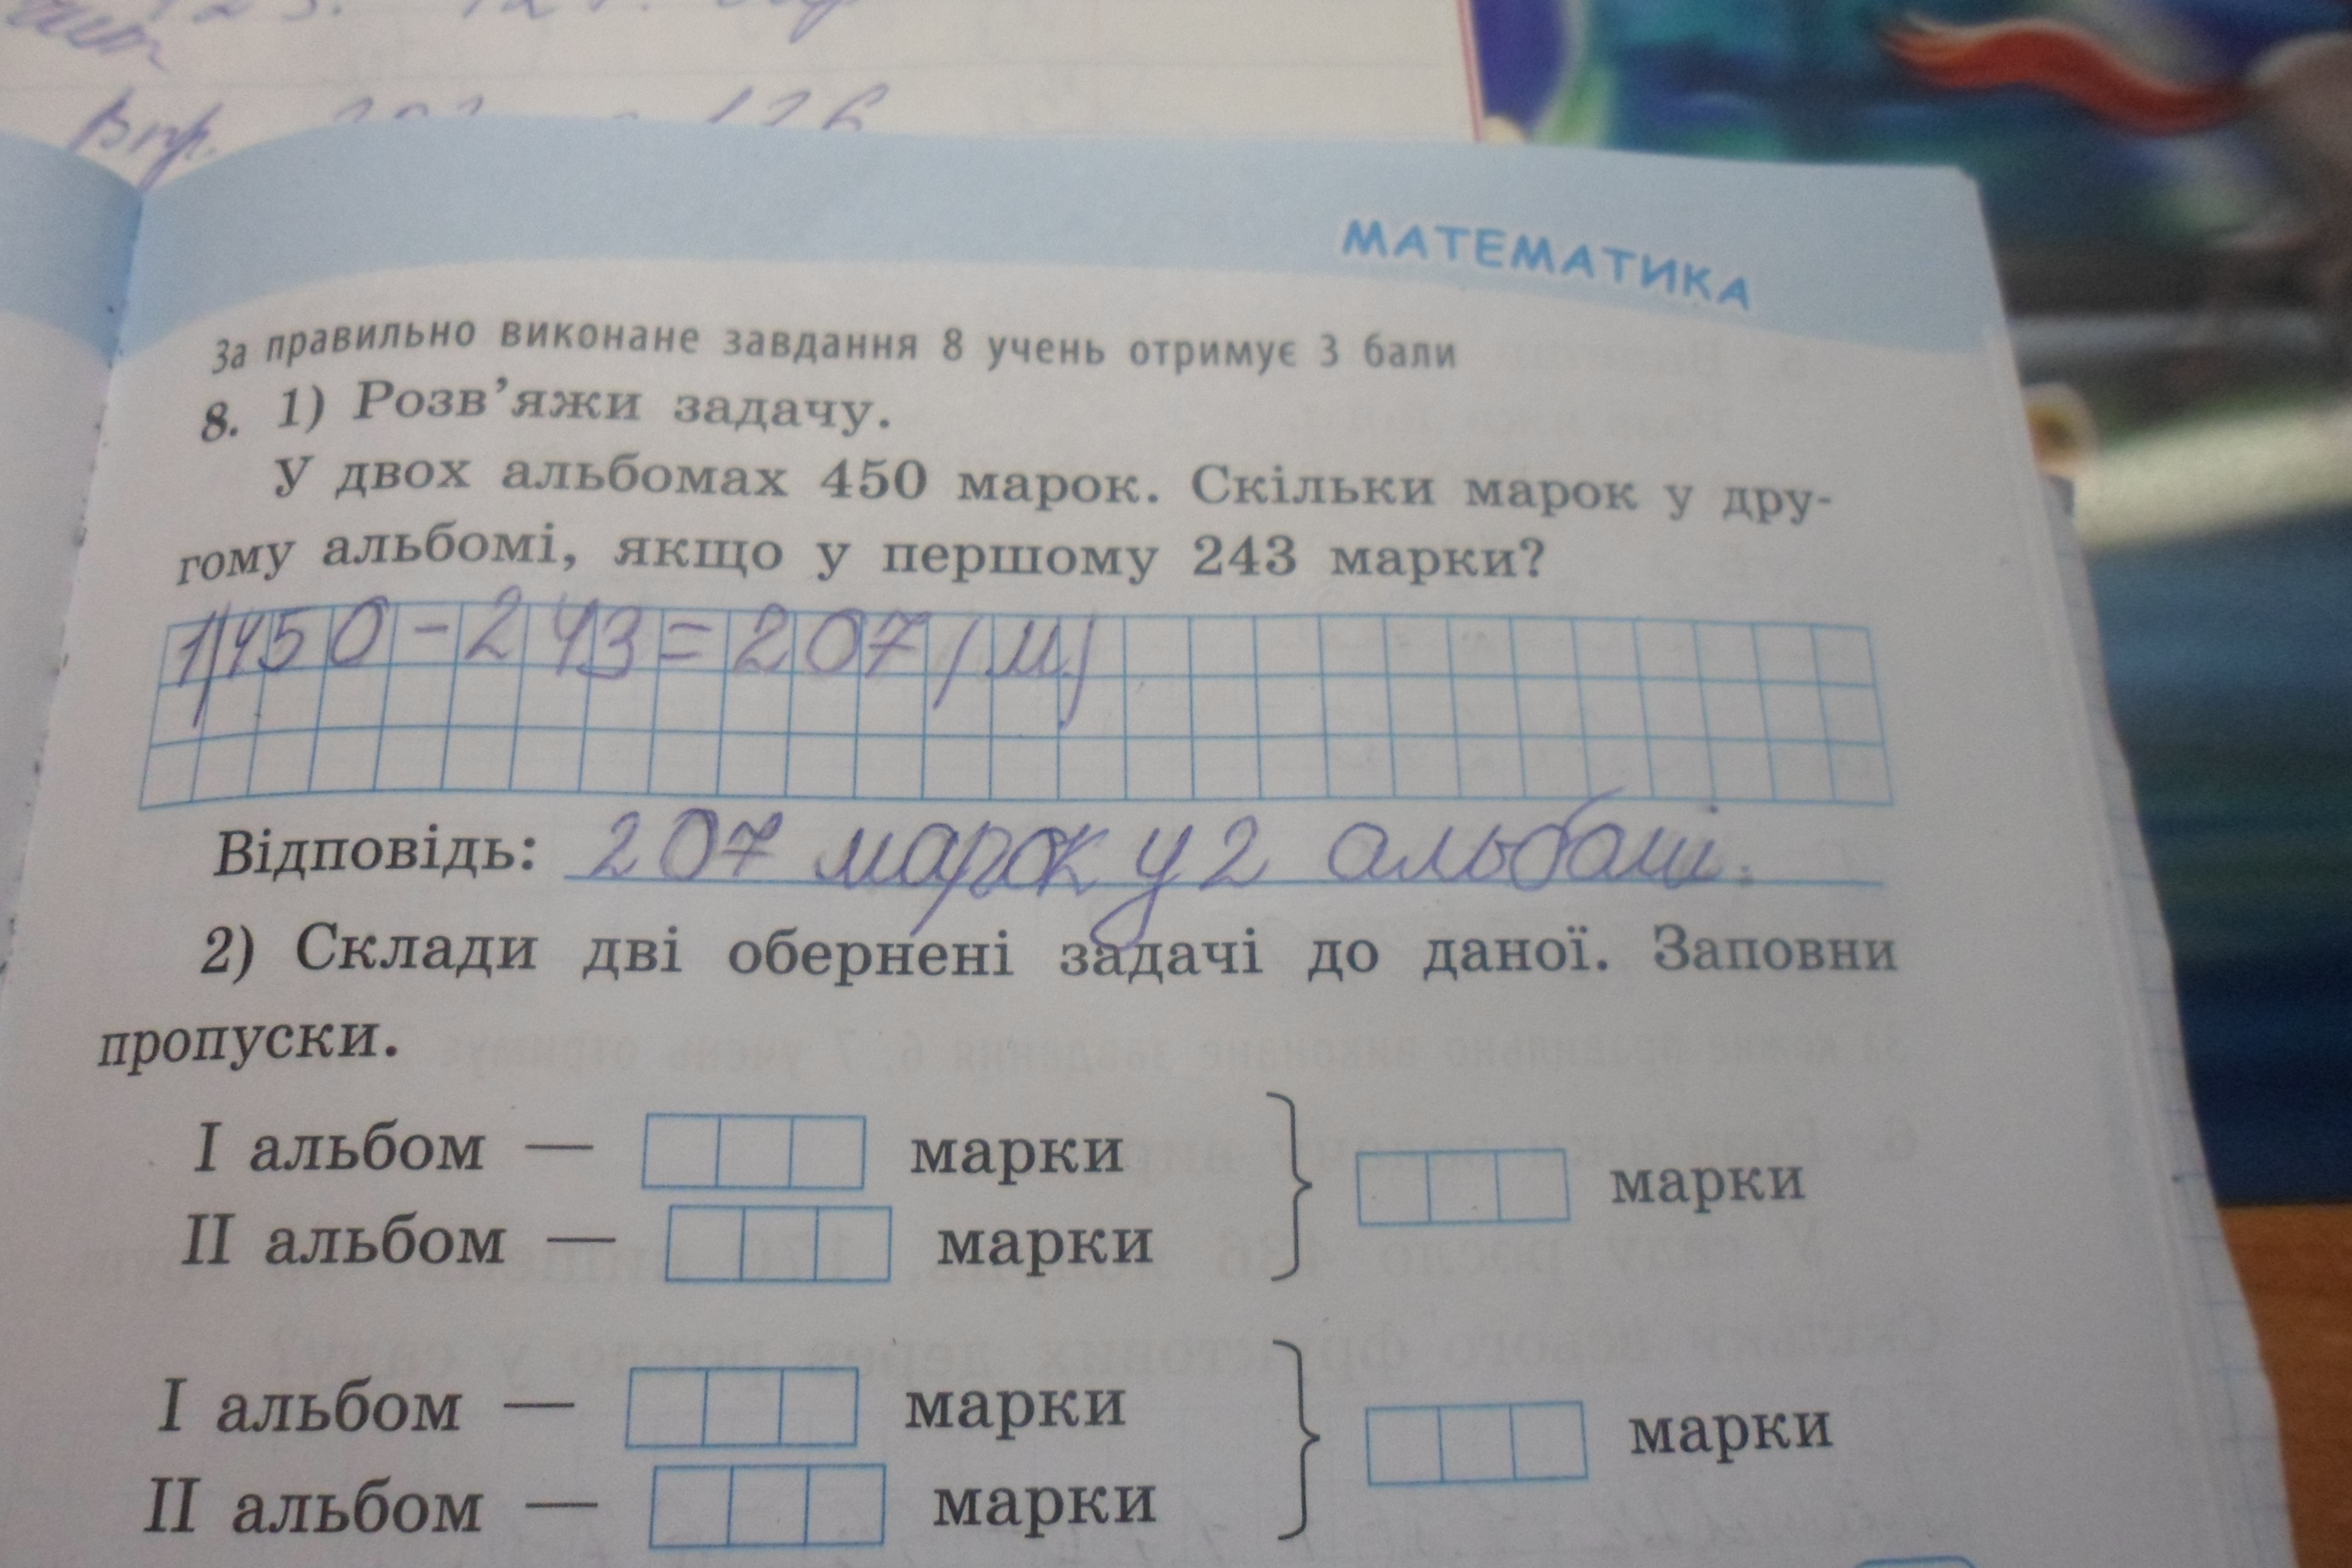 Впр.
МАТЕМАТИКА
За правильно виконане завдання 8 учень отримує 3 бали
8. 1) Розв’яжи задачу.
У двох альбомах 450 марок. Скільки марок у дру-
гому альбомі, якщо у першому 243 марки?
1) 450 - 243 = 207 (м)
Відповідь: 207 марок у 2 альбомі.
2) Склади дві обернені задачі до даної. Заповни
пропуски.
I альбом — марки
марки
II альбом — марки
I альбом — марки
марки
II альбом — марки